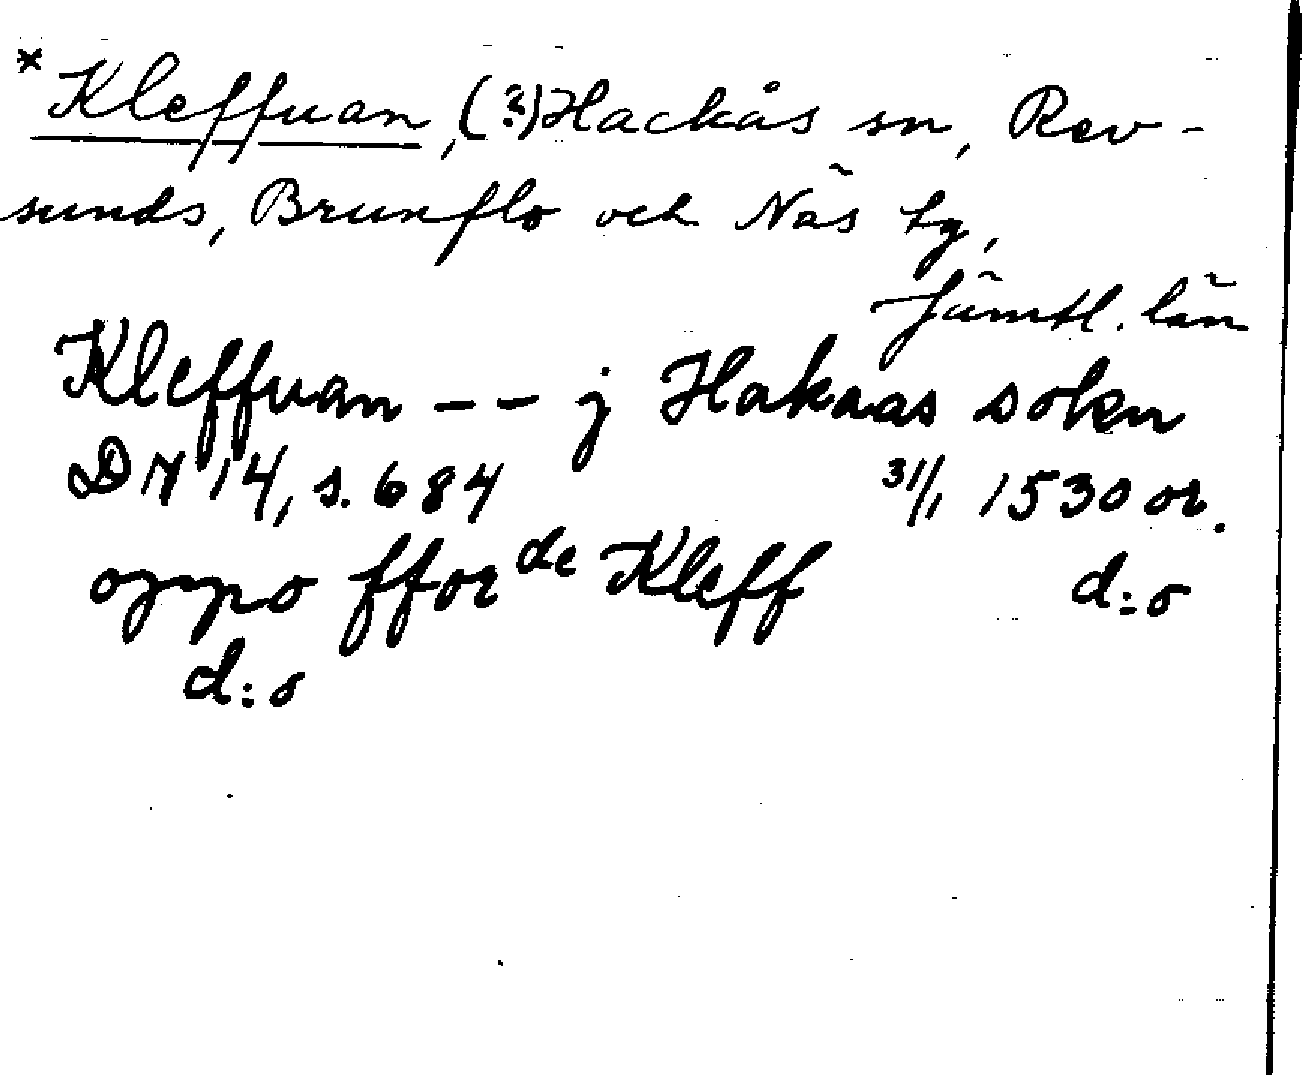 * Kleffuan, (?) Hackås sn, Rev-
sunds, Brunflo och Näs tg,
Jämtl. län
Kleffuan -- j Hakaas sokn
DN 14, s. 684 31/1 1530 or.
oppo fforde Kleff d:o
d:o